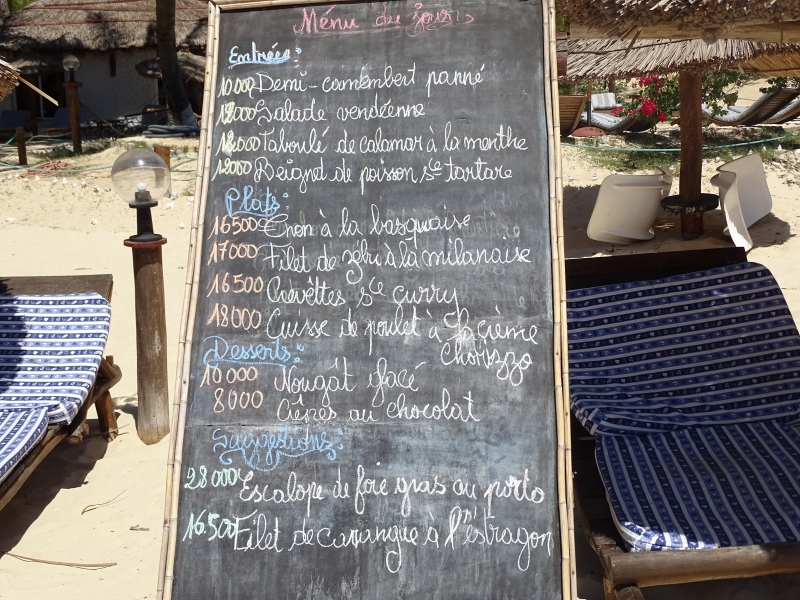 Ménu du jour
Entrées:
10000 Demi-camembert panné
12000 Salade vendéenne
12000 Taboulé de calamar à la menthe
12000 Beignet de poisson sce tartare
Plats:
16500 Thon à la basquaise
17000 Filet de zébu à la milanaise
16500 Crevettes sce curry
18000 Cuisse de poulet à la crème
Chorizzo
Desserts:
10 000 Nougat glacé
8000 Crêpes au chocolat
Suggestions:
28 000 Escalope de foie gras au porto
16.500 Filet de carangue à l'estragon